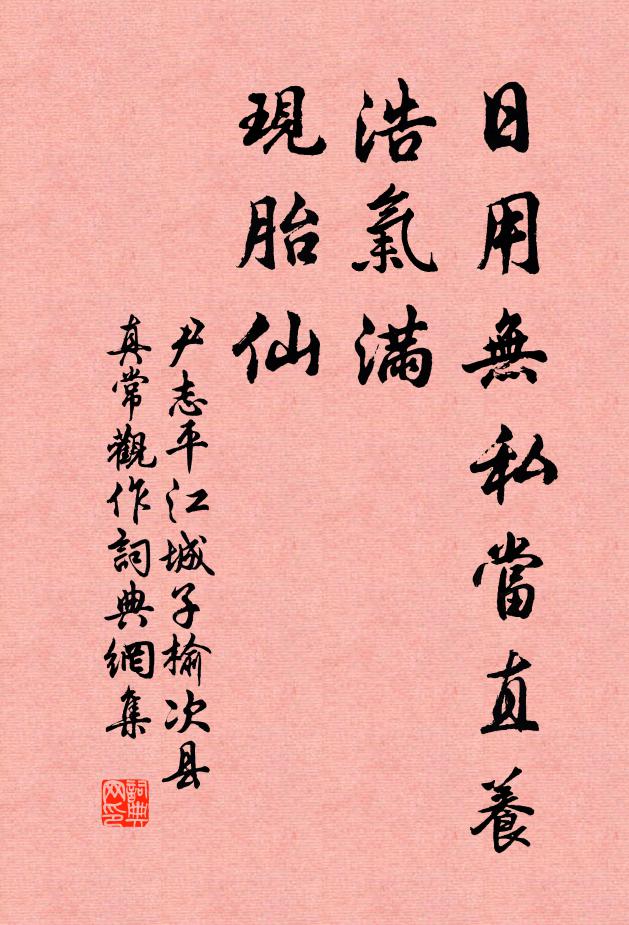 日用無私當直養
浩氣滿
現胎仙
尹志平江城子榆次县
真常觀作詞典網集
詞典
网印